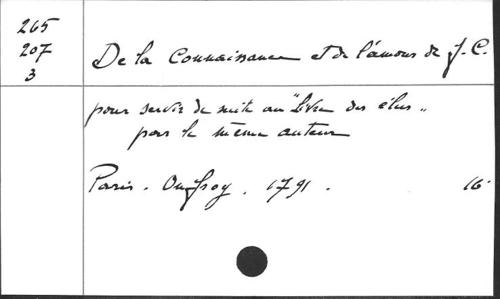 265
207
3
De la Connaissance et de l'amour de J.-C.
pour servir de suite au "Livre des élus"
par le même auteur
Paris. Onfroy. 1791. 16°